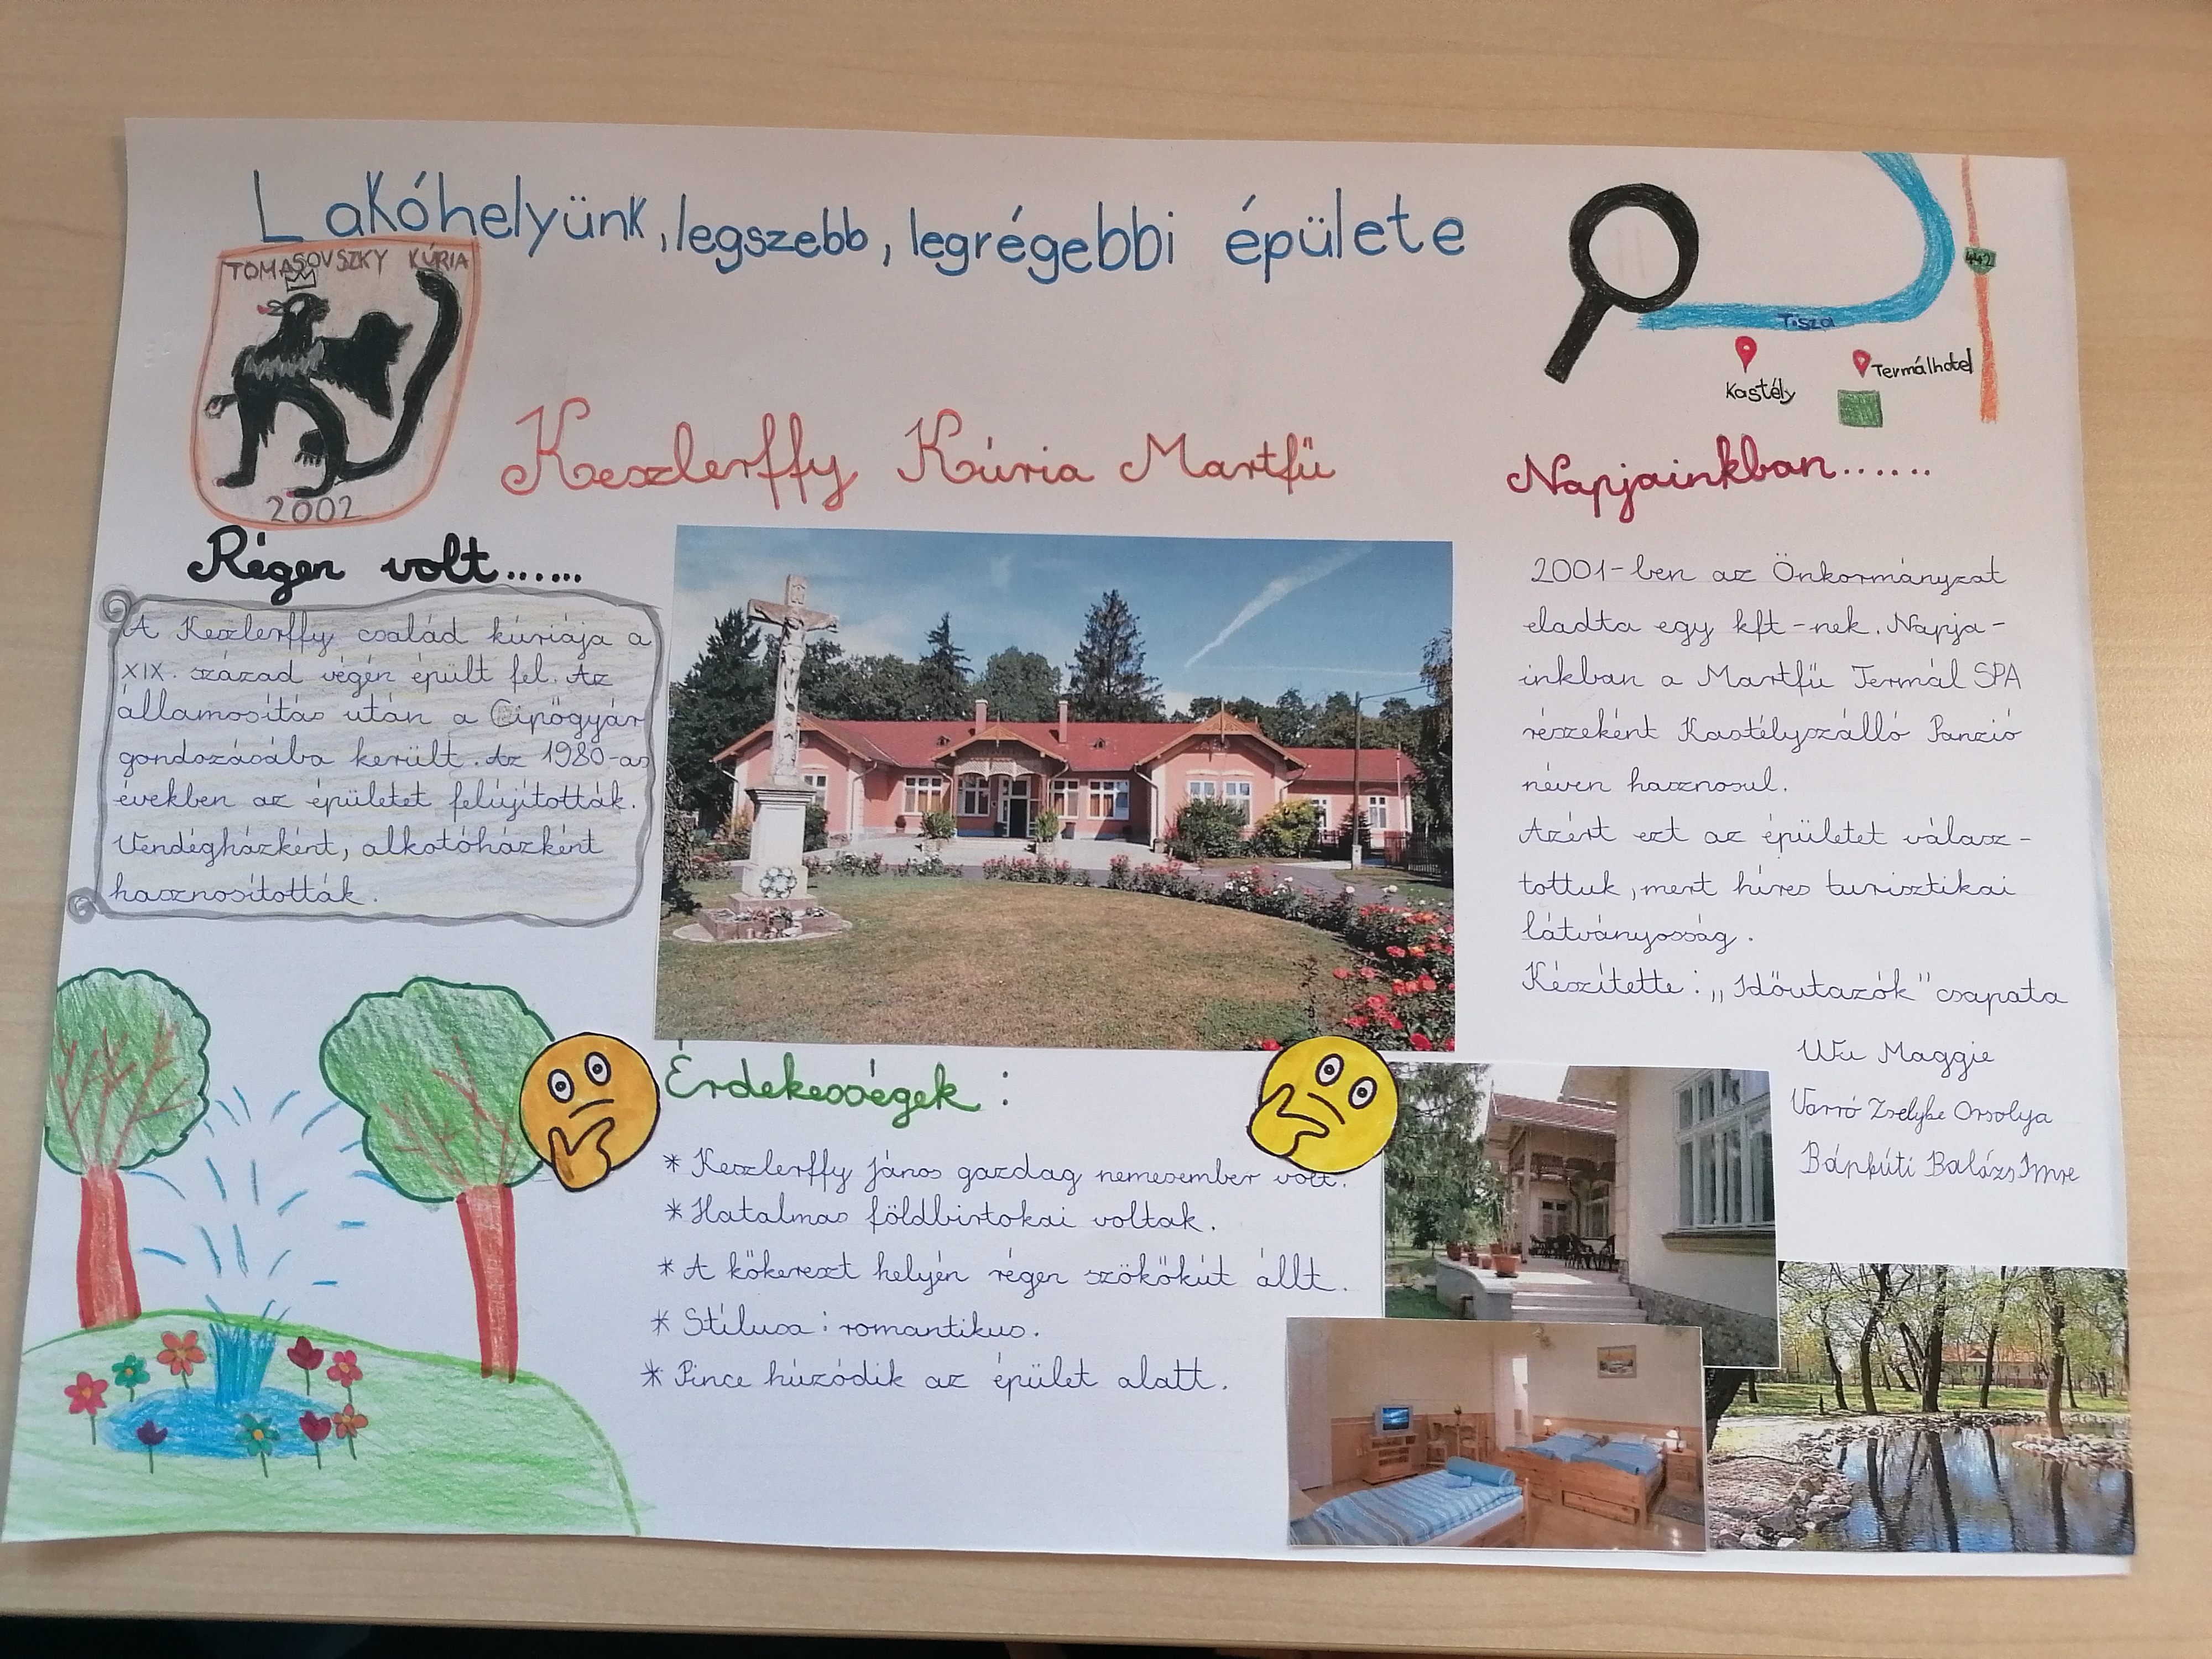 Lakóhelyünk, legszebb, legrégebbi épülete
TOMASOVSZKY KÚRIA
2002
Tisza
442
Kastély
Termálhotel
Keszlerffy Kúria Martfű
Régen volt......
A Keszlerffy család kúriája a
XIX. század végén épült fel. Az
államosítás után a Cipőgyár
gondozásába került. Az 1980-as
években az épületet felújították.
Vendégházként, alkotóházként
hasznosították.
Napjainkban......
2001-ben az Önkormányzat
eladta egy kft-nek. Napja-
inkban a Martfű Termál SPA
részeként Kastélyszálló Panzió
néven hasznosul.
Azért ezt az épületet válasz-
tottuk, mert híres turisztikai
látványosság.
Készítette: „Időutazók" csapata
Wu Maggie
Varró Zselyke Orsolya
Balázs Imre
Érdekességek :
* Keszlerffy János gazdag nemesember volt.
* Hatalmas földbirtokai voltak.
* A kőkereszt helyén régen szökőkút állt.
* Stílusa: romantikus.
* Pince húzódik az épület alatt.